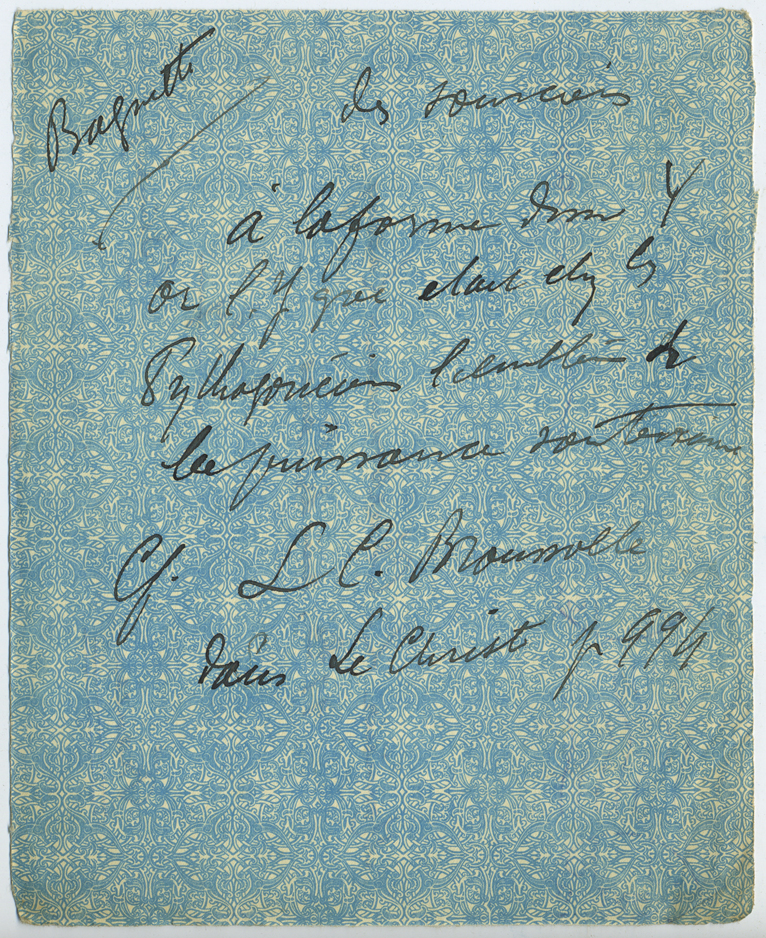 Baguette
des sourciers
à la forme d'un Y
or l'Y grec était chez les
Pythagoriciens l'emblème de
la puissance souterraine
Cf. L C. Broussolle
dans Le Christ p 994